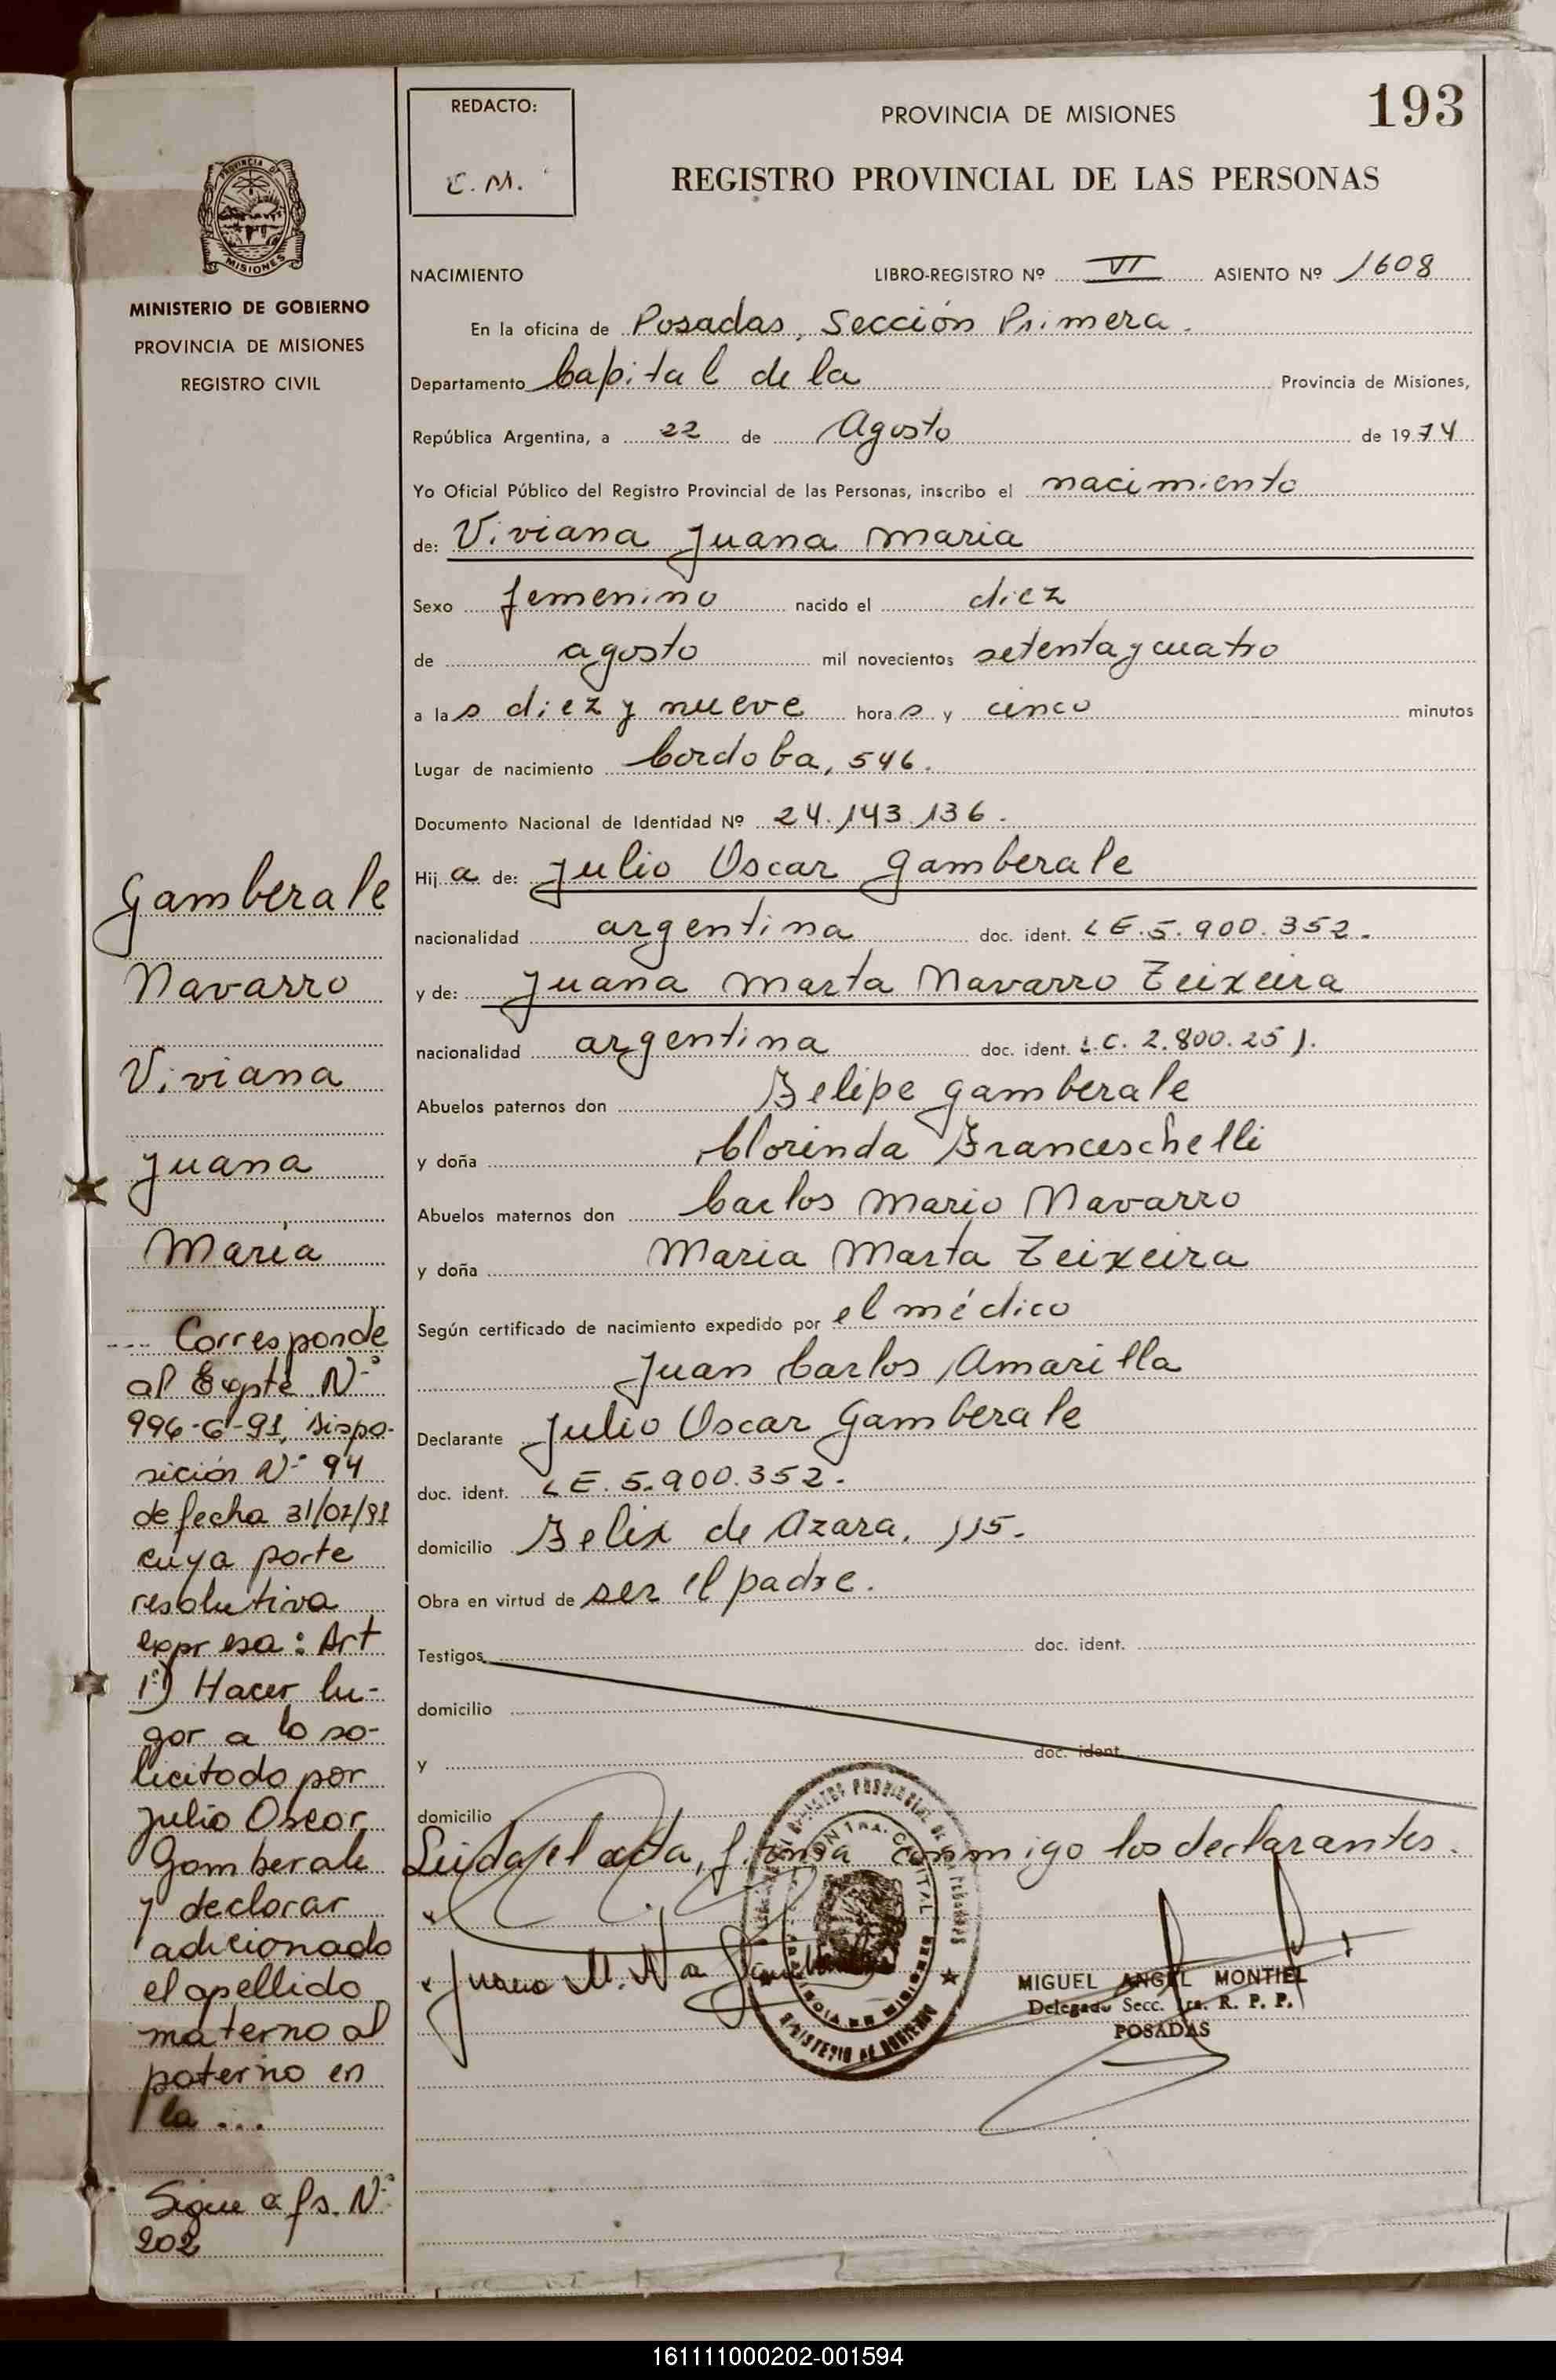 193
REDACTO:
C. M.
PROVINCIA DE MISIONES
REGISTRO PROVINCIAL DE LAS PERSONAS
MISIONES
MINISTERIO DE GOBIERNO
PROVINCIA DE MISIONES
REGISTRO CIVIL
NACIMIENTO LIBRO-REGISTRO Nº VI ASIENTO Nº 1608
En la oficina de Posadas, Sección Primera.
Departamento Capital de la Provincia de Misiones,
República Argentina, a 22 de Agosto de 1974
Yo Oficial Público del Registro Provincial de las Personas, inscribo el nacimiento
de: Viviana Juana Maria
Sexo femenino nacido el diez
de agosto mil novecientos setenta y cuatro
a las diez y nueve horas y cinco minutos
Lugar de nacimiento Cordoba, 546.
Documento Nacional de Identidad Nº 24.143.136.
Hija de: Julio Oscar Gamberale
nacionalidad argentina doc. ident. LE. 5.900.352.
y de: Juana Marta Navarro Teixeira
nacionalidad argentina doc. ident. L.C. 2.800.251.
Abuelos paternos don Felipe Gamberale
y doña Clorinda Franceschelli
Abuelos maternos don Carlos Mario Navarro
y doña Maria Marta Teixeira
Según certificado de nacimiento expedido por el médico
Juan Carlos Amarilla
Declarante Julio Oscar Gamberale
doc. ident. LE. 5.900.352.
domicilio Felix de Azara, 115.
Obra en virtud de ser el padre.
Testigos doc. ident.
domicilio
y doc. ident.
domicilio
Leida el acta, firma conmigo los declarantes.
Juana M. N de
MIGUEL ANGEL MONTIEL
Delegado Secc. 1ra. R. P. P.
POSADAS
Gamberale
Navarro
Viviana
Juana
María
Corresponde
al Expte Nº
996-G-91, dispo-
sición Nº 94
de fecha 31/07/91
cuya parte
resolutiva
expresa: Art
1º) Hacer lu-
gar a lo so-
licitado por
Julio Oscar
Gamberale
y declarar
adicionado
el apellido
materno al
paterno en
la ...
Sigue a fs. Nº
202
161111000202-001594